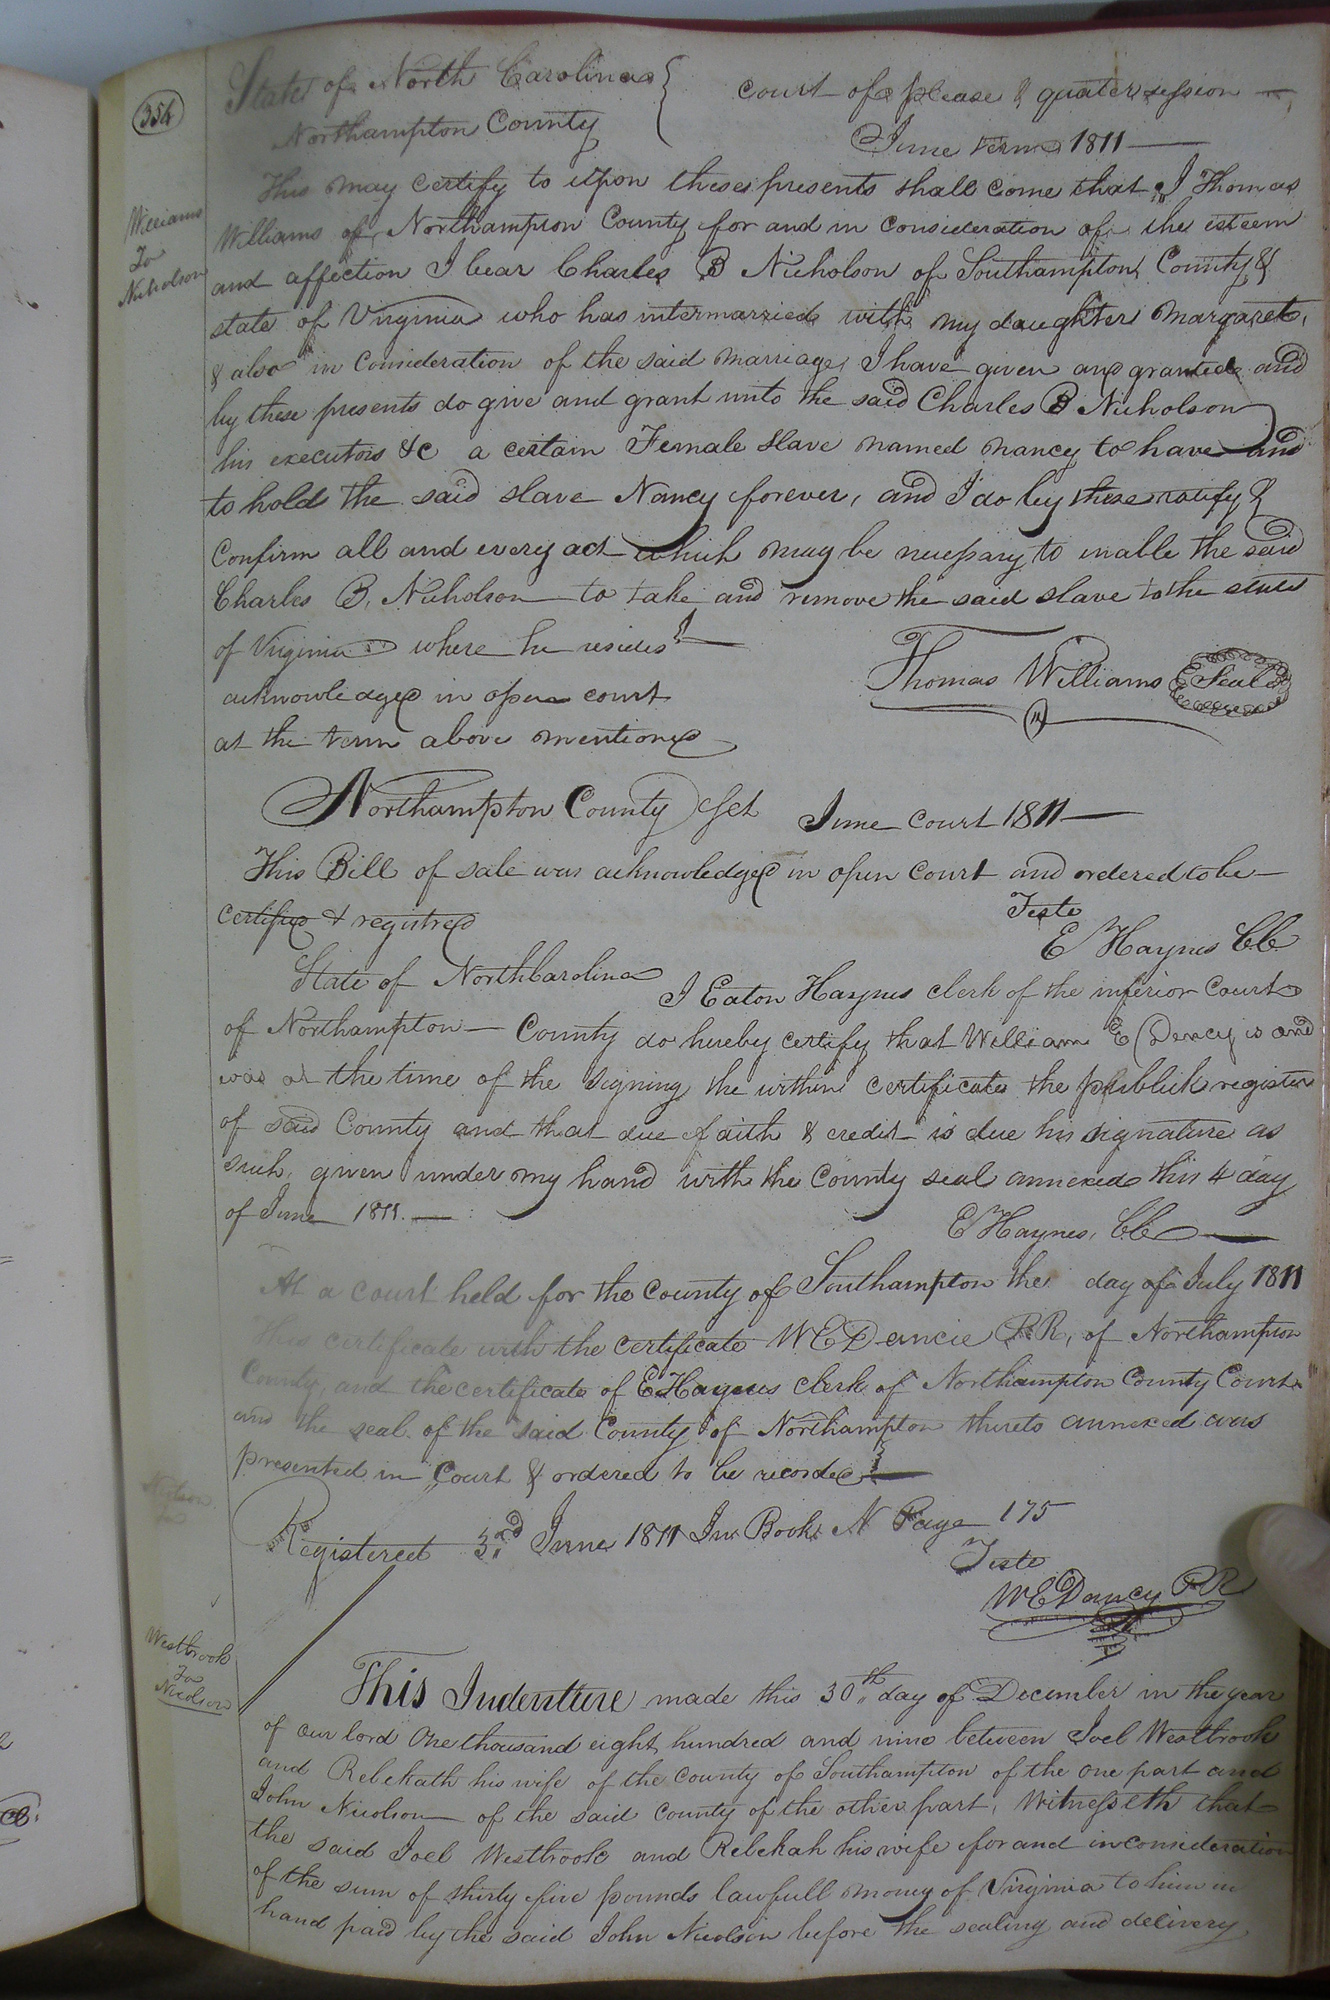 354
State of North Carolina { court of please & quater session
Northampton County June term 1811
Williams
To
Nicholson
This may certify to upon these presents shall come that I Thomas
Williams of Northampton County for and in consideration of the esteem
and affection I bear Charles B Nicholson of Southampton County &
state of Virginia who has intermarried with my daughter Margaret,
& also in consideration of the said marriage, I have given and granted and
by these presents do give and grant unto the said Charles B Nicholson
his executors &c a certain Female slave named nancy to have and
to hold the said slave Nancy forever, and I do by these ratify &
Confirm all and every act which may be necessary to inable the said
Charles B, Nicholson to take and remove the said slave to the state
of Virginia where he resides
Thomas Williams Seal
acknowledged in open court
at the term above mentioned
Northampton County Sct June court 1811
This Bill of sale was acknowledged in open court and ordered to be
certified & registred
Teste
E Haynes CC
State of North Carolina
I Eaton Haynes clerk of the inferior Court
of Northampton County do hereby certify that William E Dancy is and
was at the time of the signing the within certificate the publick register
of said County and that due faith & credit is due his signature as
such, given under my hand with the County seal annexed this 4 day
of June 1811.
E Haynes, CC
At a court held for the county of Southampton the day of July 1811
This certificate with the certificate W E Dancie P R, of Northampton
County, and the certificate of E Haynes clerk of Northampton County Court
and the seal of the said County of Northampton thereto annexed was
presented in Court & ordered to be recorded
Registered 3rd June 1811 In Book N Page 175
Teste
W E Dancy P R
Westbrook
To
Nicolson
This Indenture made this 30th day of December in the year
of our lord One thousand eight hundred and nine between Joel Westbrook
and Rebekath his wife of the county of Southampton of the one part and
John Nicolson of the said county of the other part, Witnesseth that
the said Joel Westbrook and Rebekah his wife for and in consideration
of the sum of thirty five pounds lawfull money of Virginia to him in
hand paid by the said John Nicolson before the sealing and delivery